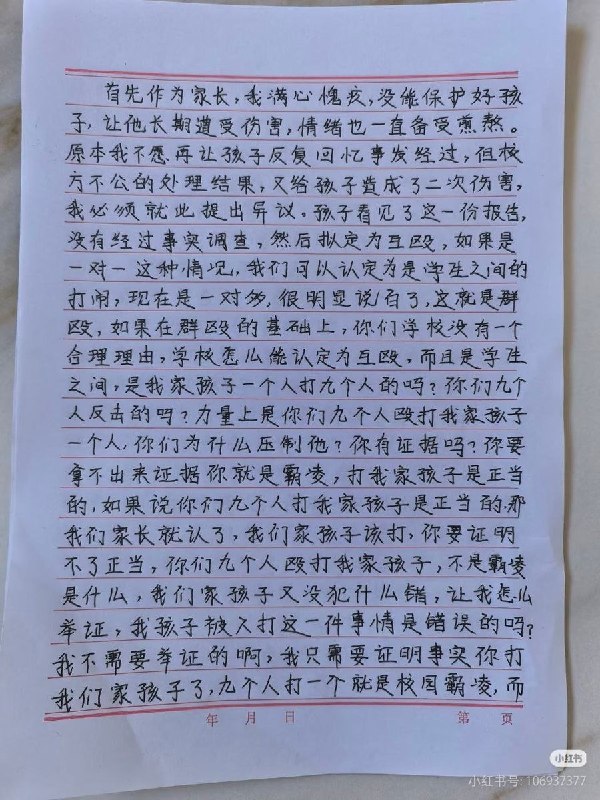 首先作为家长，我满心愧疚，没能保护好孩
子，让他长期遭受伤害，情绪也一直备受煎熬。
原本我不愿再让孩子反复回忆事发经过，但校
方不公的处理结果，又给孩子造成了二次伤害，
我必须就此提出异议。孩子看见了这一份报告，
没有经过事实调查，然后拟定为互殴，如果是
一对一这种情况，我们可以认定为是学生之间的
打闹，现在是一对多，很明显说白了，这就是群
殴，如果在群殴的基础上，你们学校没有一个
合理理由，学校怎么能认定为互殴，而且是学生
之间，是我家孩子一个人打九个人的吗？你们九个
人反击的吗？力量上是你们九个人殴打我家孩子
一个人，你们为什么压制他？你有证据吗？你要
拿不出来证据你就是霸凌，打我家孩子是正当
的，如果说你们九个人打我家孩子是正当的，那
我们家长就认了，我们家孩子该打，你要证明
不了正当，你们九个人殴打我家孩子，不是霸凌
是什么，我们家孩子又没犯什么错，让我怎么
举证，我孩子被人打这一件事情是错误的吗？
我不需要举证的啊，我只需要证明事实你打
我们家孩子了，九个人打一个就是校园霸凌，而
年 月 日 第 页
小红书
小红书号: 106937377